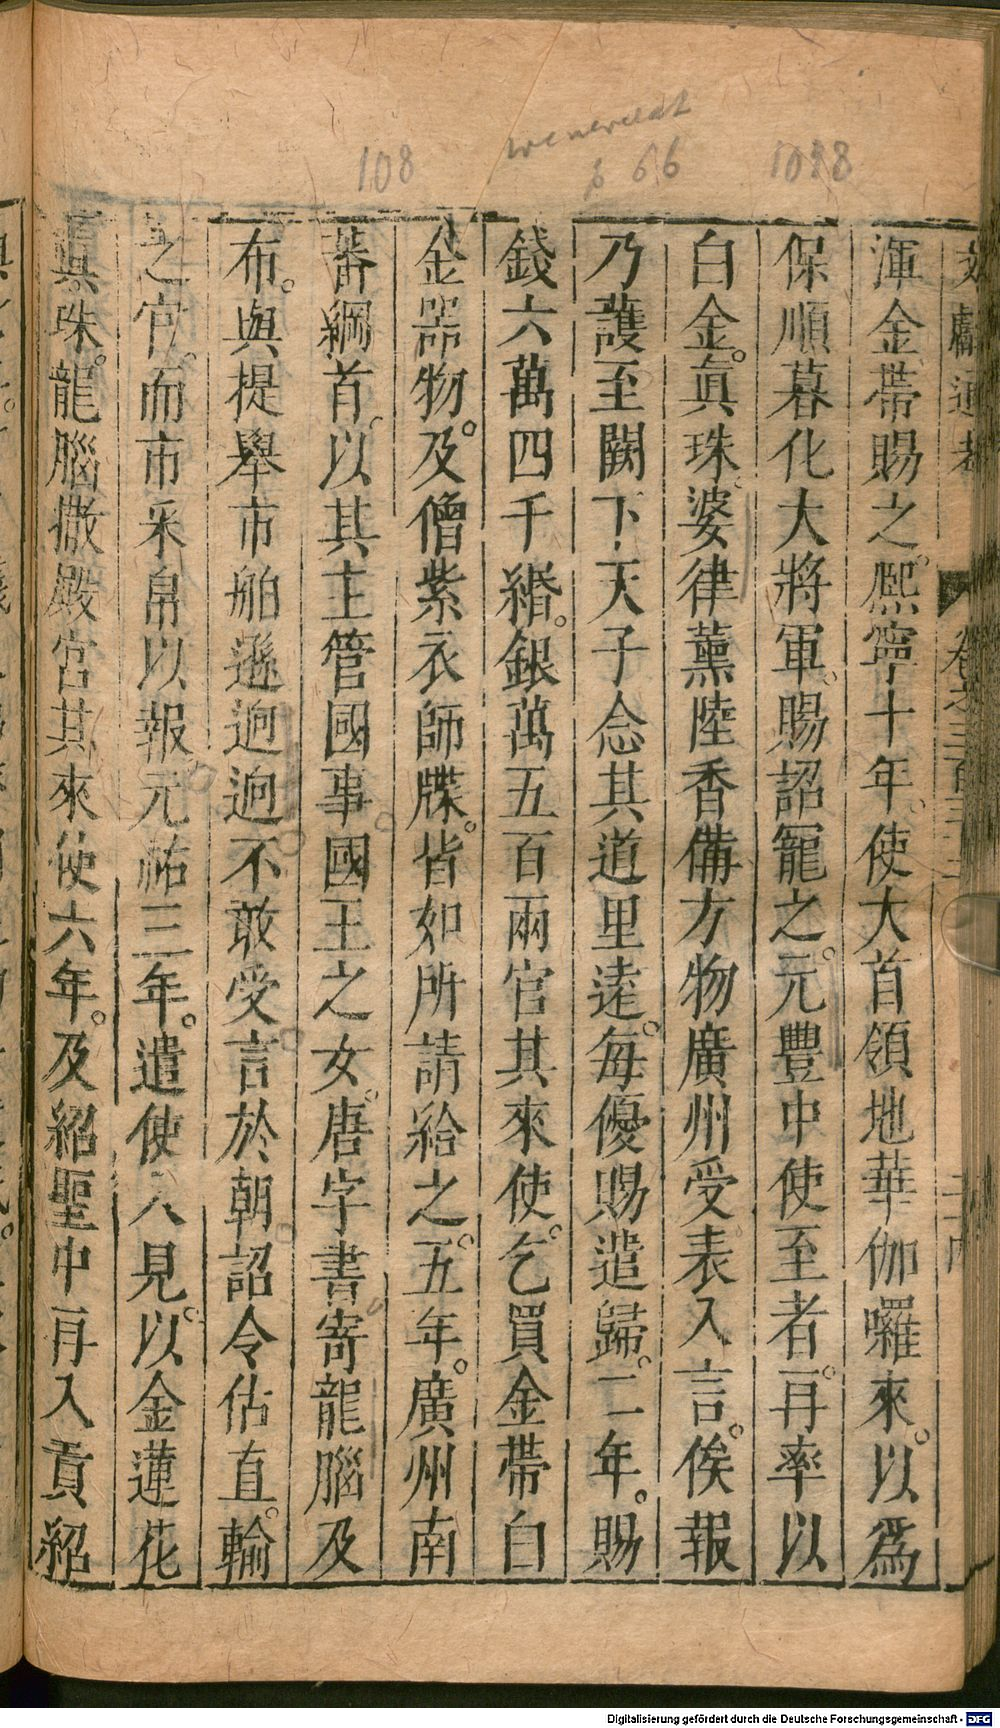 108
666
1088
文獻通考 卷之三百三十二
渾金帶賜之熙寧十年使大首領地華伽囉來以爲
保順慕化大將軍賜詔寵之元豐中使至者再率以
白金眞珠婆律薰陸香備方物廣州受表入言俟報
乃護至闕下天子念其道里遠每優賜遣歸二年賜
錢六萬四千緡銀萬五百兩官其來使乞買金帶白
金器物及僧紫衣師牒皆如所請給之五年廣州南
蕃綱首以其主管國事國王之女唐字書寄龍腦及
布與提舉市舶遜逈逈不敢受言於朝詔令估直輸
之官而市采帛以報元祐三年遣使入見以金蓮花
眞珠龍腦撒殿官其來使六年及紹聖中再入貢紹
Digitalisierung gefördert durch die Deutsche Forschungsgemeinschaft - DFG